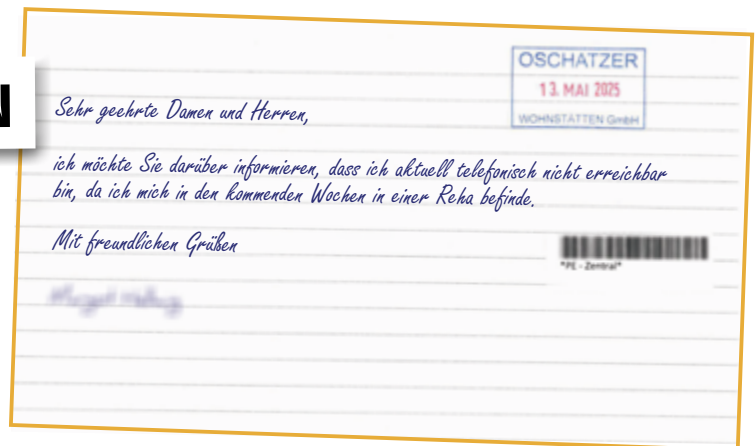 OSCHATZER
13. MAI 2025
WOHNSTÄTTEN GmbH
Sehr geehrte Damen und Herren,
ich möchte Sie darüber informieren, dass ich aktuell telefonisch nicht erreichbar
bin, da ich mich in den kommenden Wochen in einer Reha befinde.
Mit freundlichen Grüßen
*PE - Zentral*